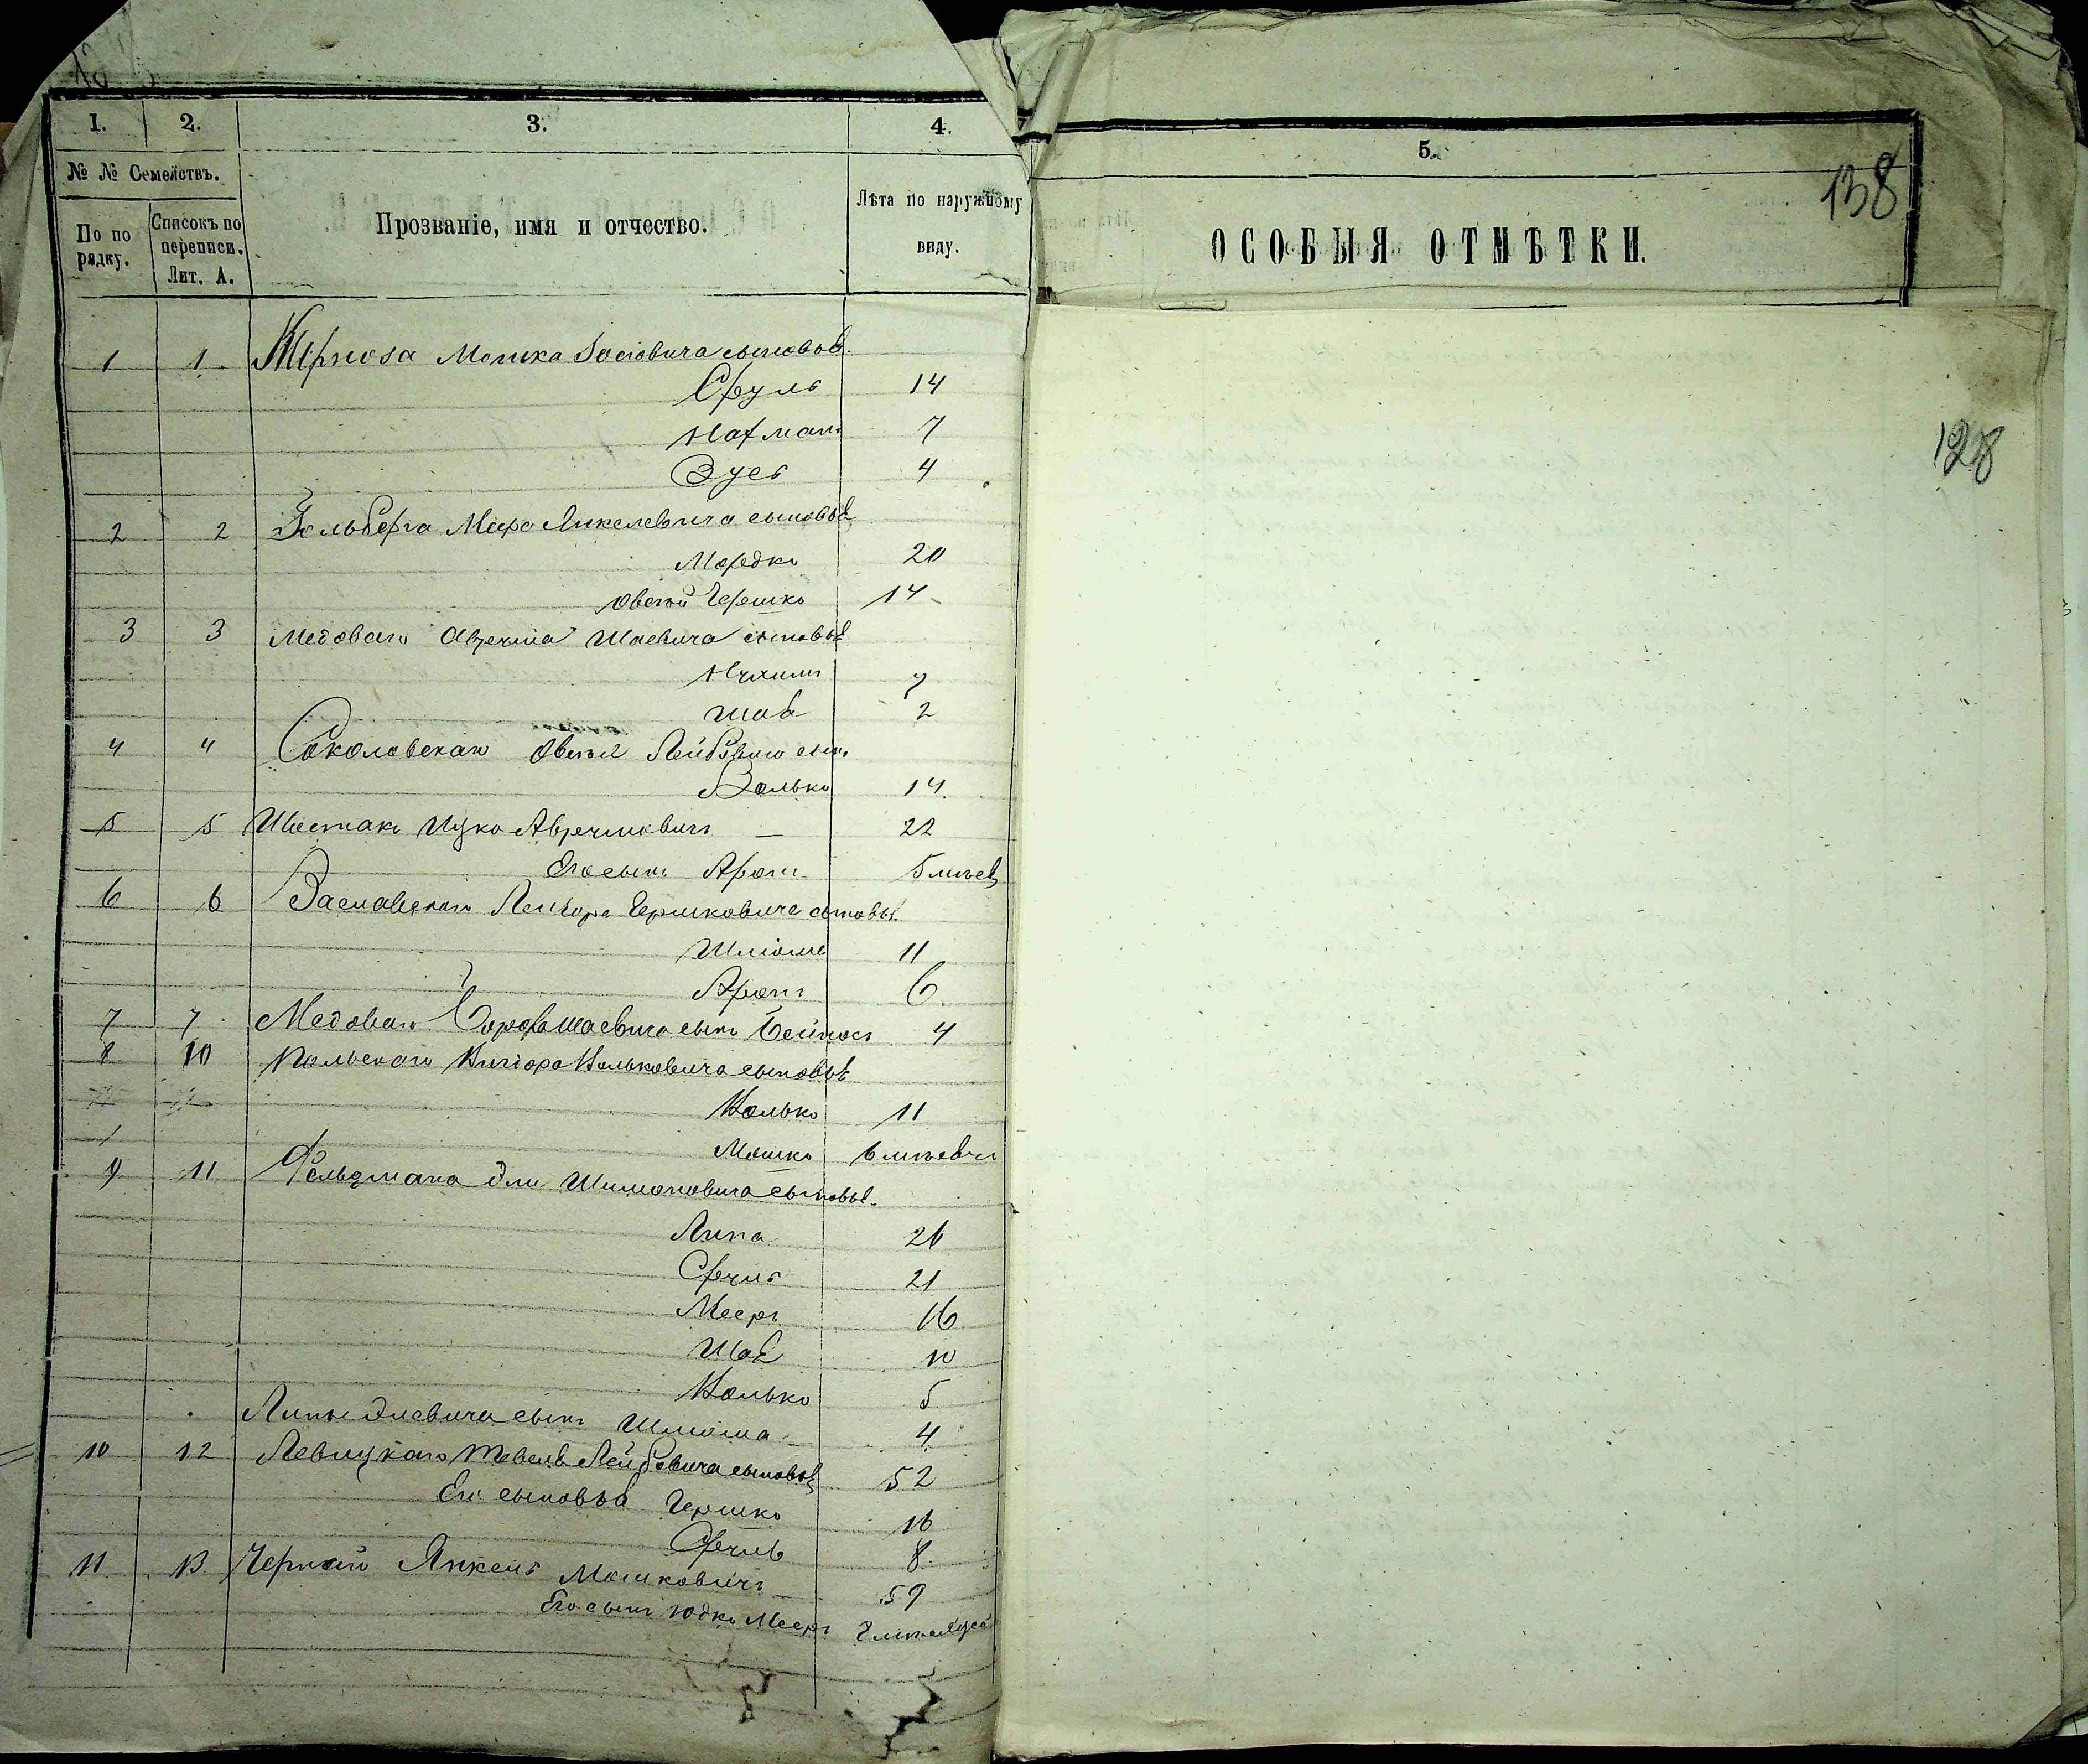 1. 2. 3. 4. 5.
138
№ № Семействъ.
По по рядку. Списокъ по переписи. Лит. А.
Прозваніе, имя и отчество.
Лѣта по наружному виду.
ОСОБЫЯ ОТМѢТКИ.
128
1 1. Мошка Іосіовича сыновья
Сруль 14
Нахманъ 7
Зусь 4
2 2 Гольберга Меера Янкелевича сыновья
Мордко 20
Овсей Гершко 14
3 3 Медоваго Аврума Шаевича сыновья
Нухимъ 7
Шая 2
4 4 Соколовскаго Овсея Лейбовича сынъ
Волько 14
5 5 Шестакъ Ицко Аврумовичъ — 22
Его сынъ Аронъ 5 мѣсяц
6 6 Заславскаго Гершковича сыновья
Шліома 11
Аронъ 6
7 7 Медоваго Шаевича сынъ Бейнась 4
8 10 Польскаго Кигіора Кольковича сыновья
Колько 11
Мошко 6 мѣсяцъ
9 11 Фельдмана Эли Шимоновича сыновья
Липа 26
Сруль 21
Мееръ 16
Шая 10
Колько 5
Липы Элевича сынъ Шліома 4
10 12 Левицкаго Тевель Лейбовича сыновья 52
Его сыновья Гершко 16
Сруль 8
11 13 Черный Янкель Мошковичъ 59
Его сынъ Юдко Мееръ